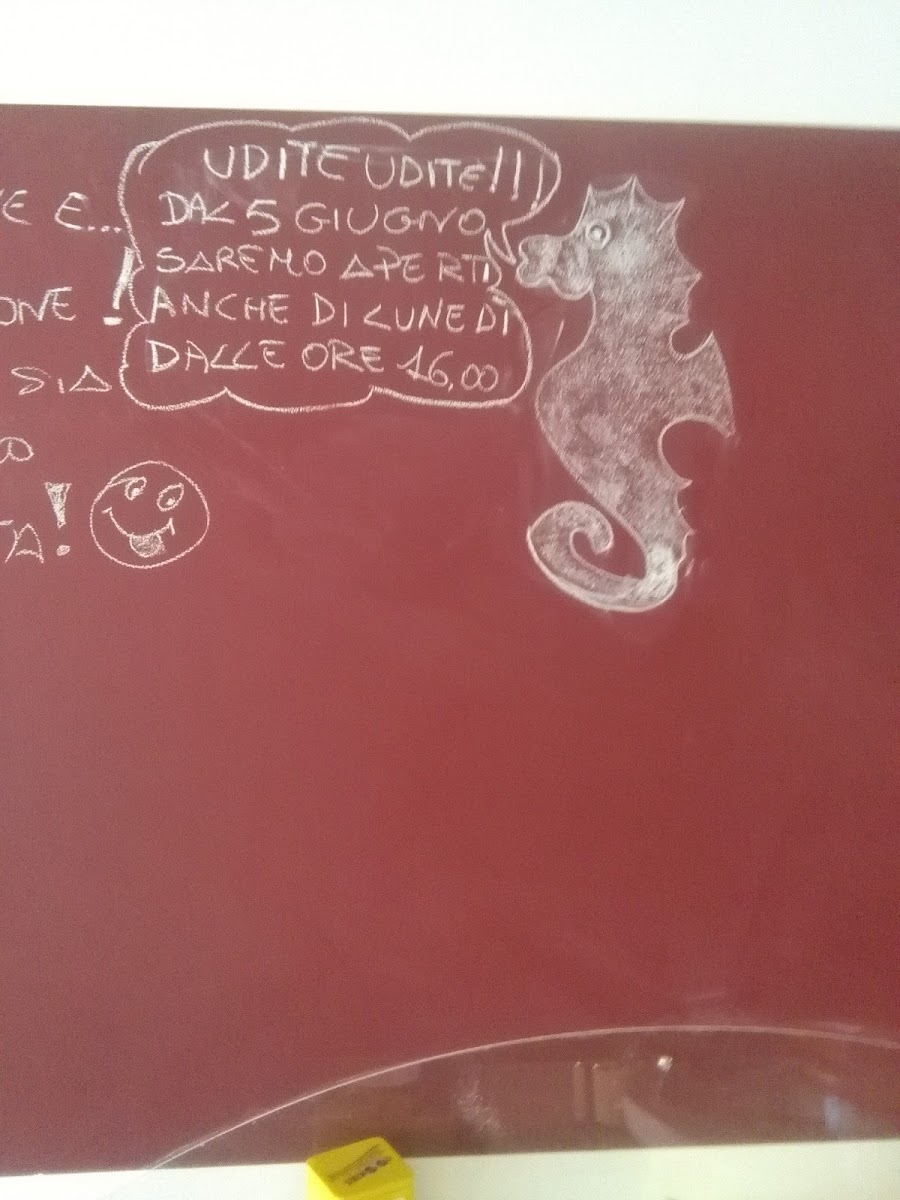 UDITE UDITE!!!
DAL 5 GIUGNO
SAREMO APERTI
ANCHE DI LUNEDÌ
DALLE ORE 16,00
E...
ONE !
SIA
TA!